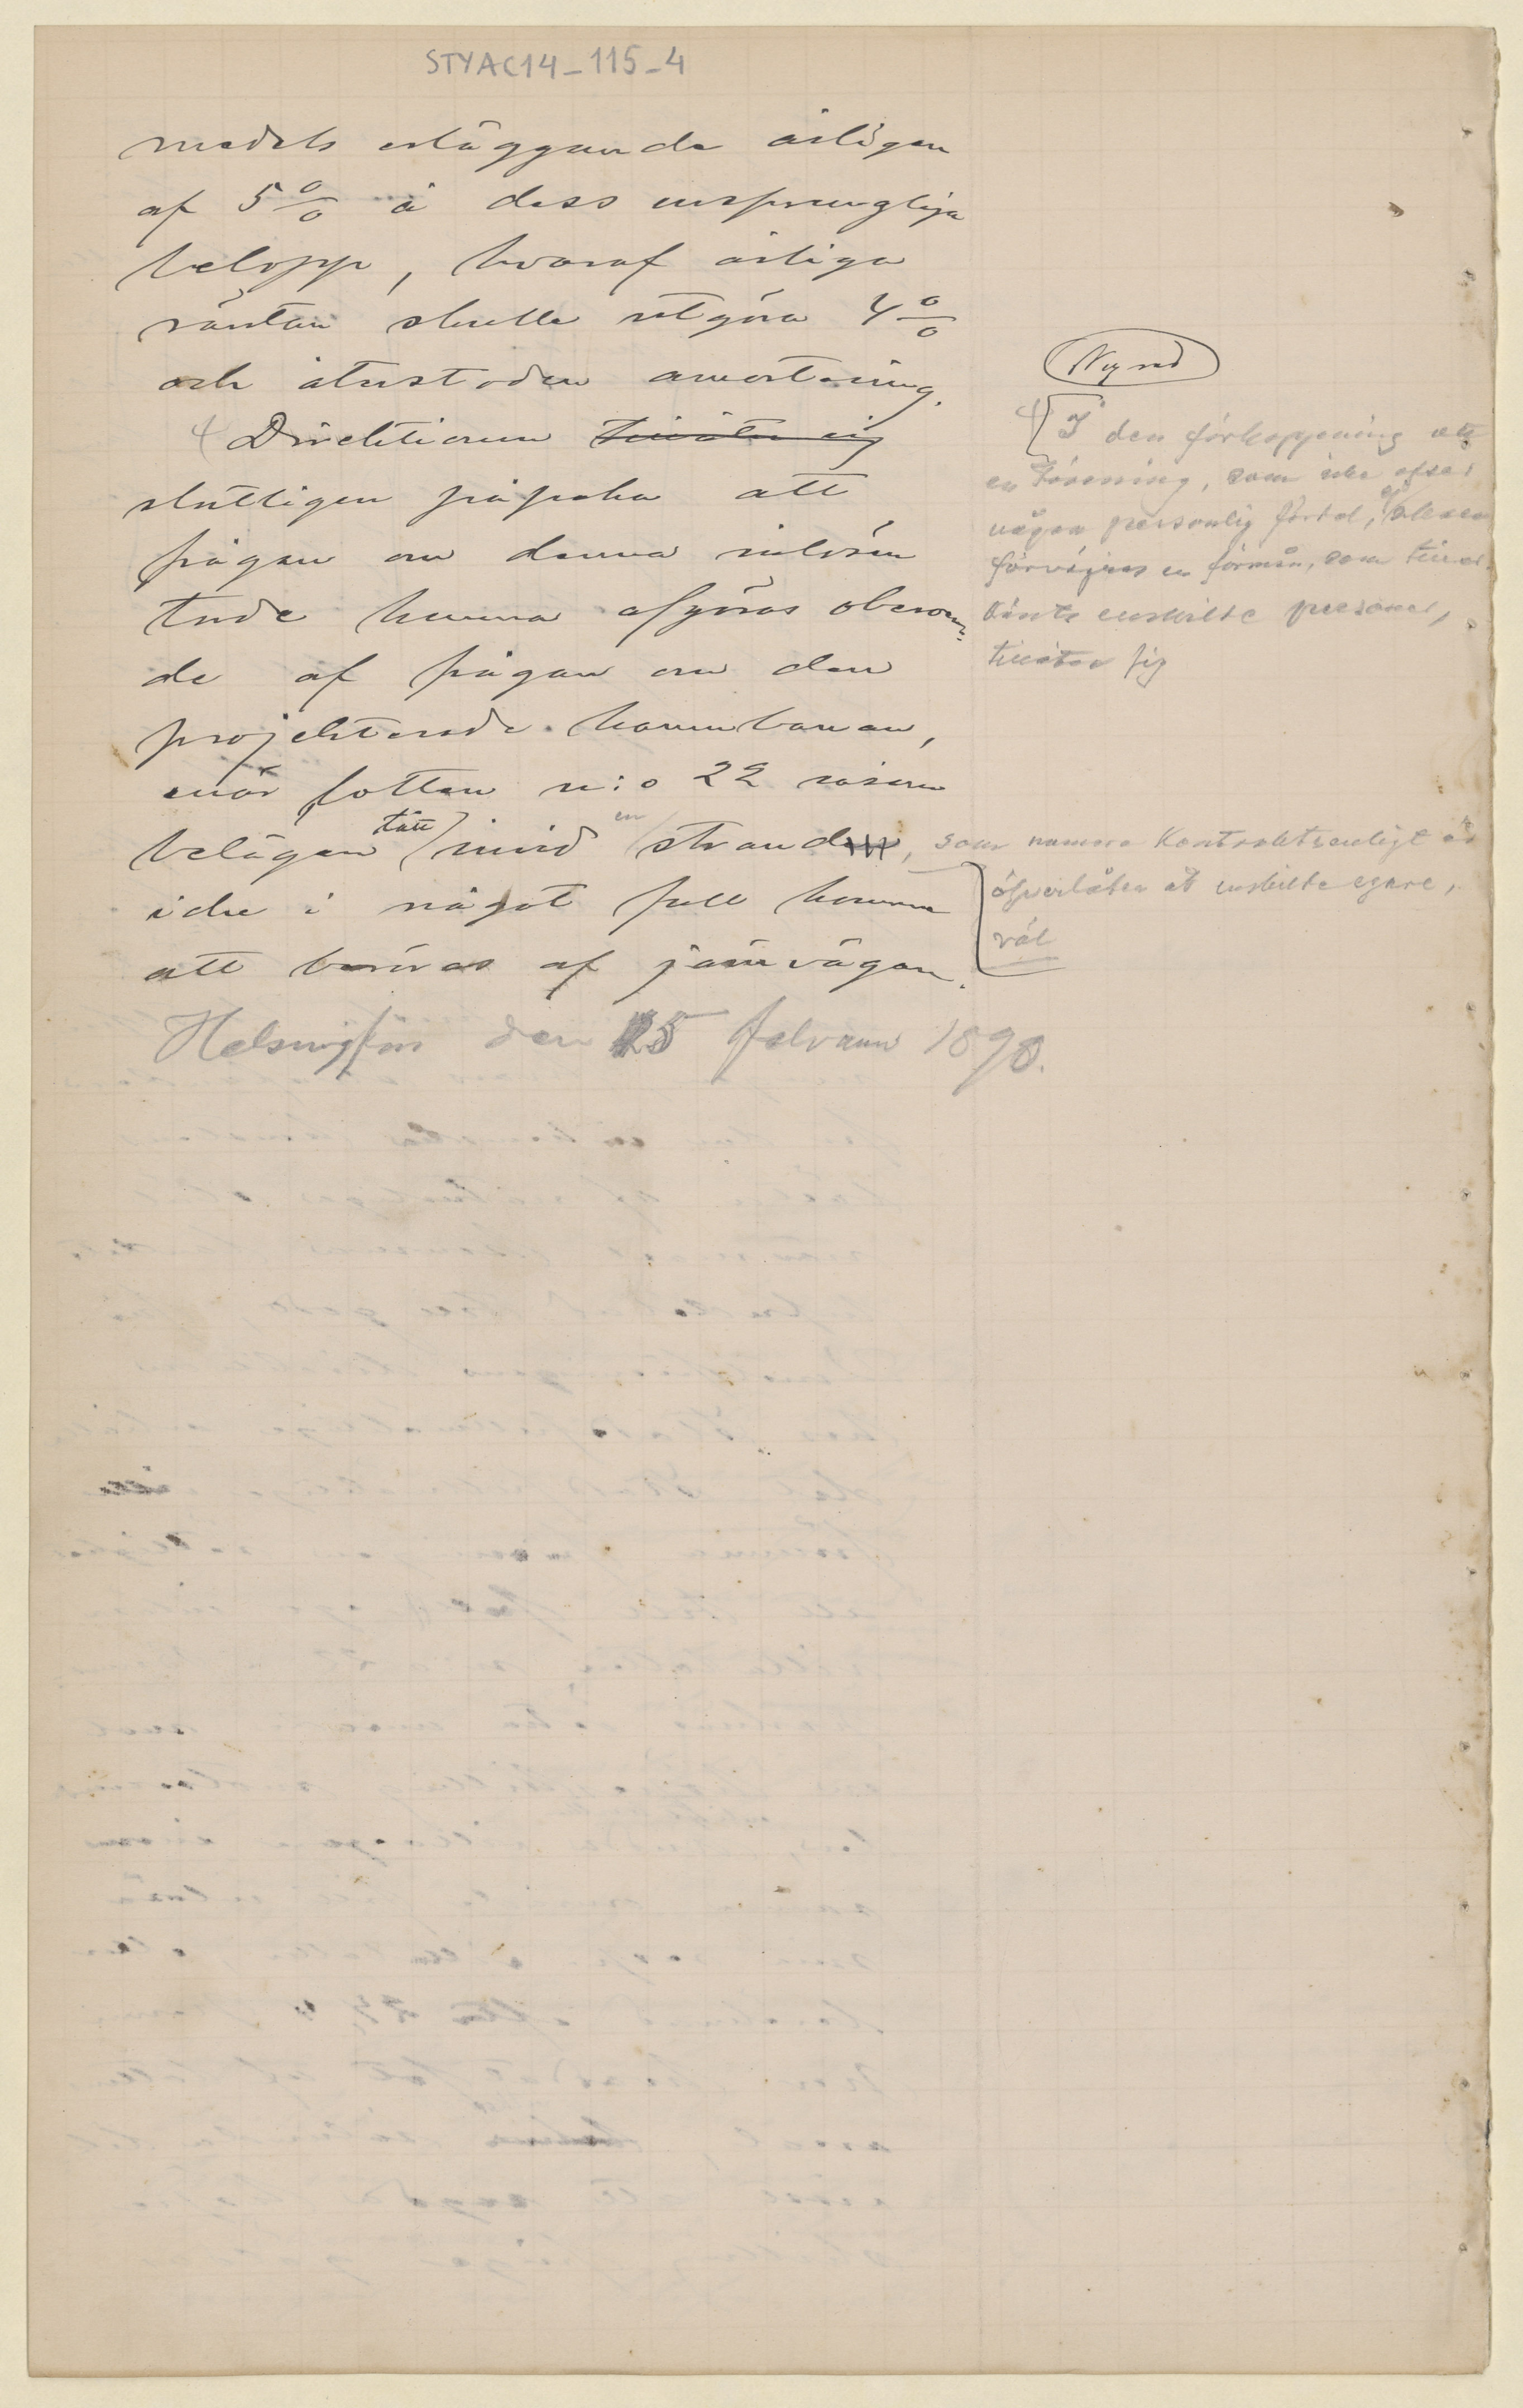 STYAC14_115_4
medels erläggande årligen
af 5% å dess ursprungliga
belopp, hvaraf årliga
räntan skulle utgöra 4%
och återstoden amortering.
Direktionen tillåter sig
slutligen påpeka att
frågan om denna inlösen
torde kunna afgöras oberoen-
de af frågan om den
projekterade hamnbanan,
enär tomten n:o 22 såsom
belägen tätt invid en stranden, som numera kontraktsenligt är
icke i något fall kommer
att beröras af järnvägen.
Helsingfors den 25 februari 1898.
Ny rad
I den förhoppning att
en förening, som icke afser
någon personlig fördel, ej skall
förvägras en förmån, som tiller-
känts enskilda personer,
tillåter sig
öfverlåten åt enskilda egare,
väl